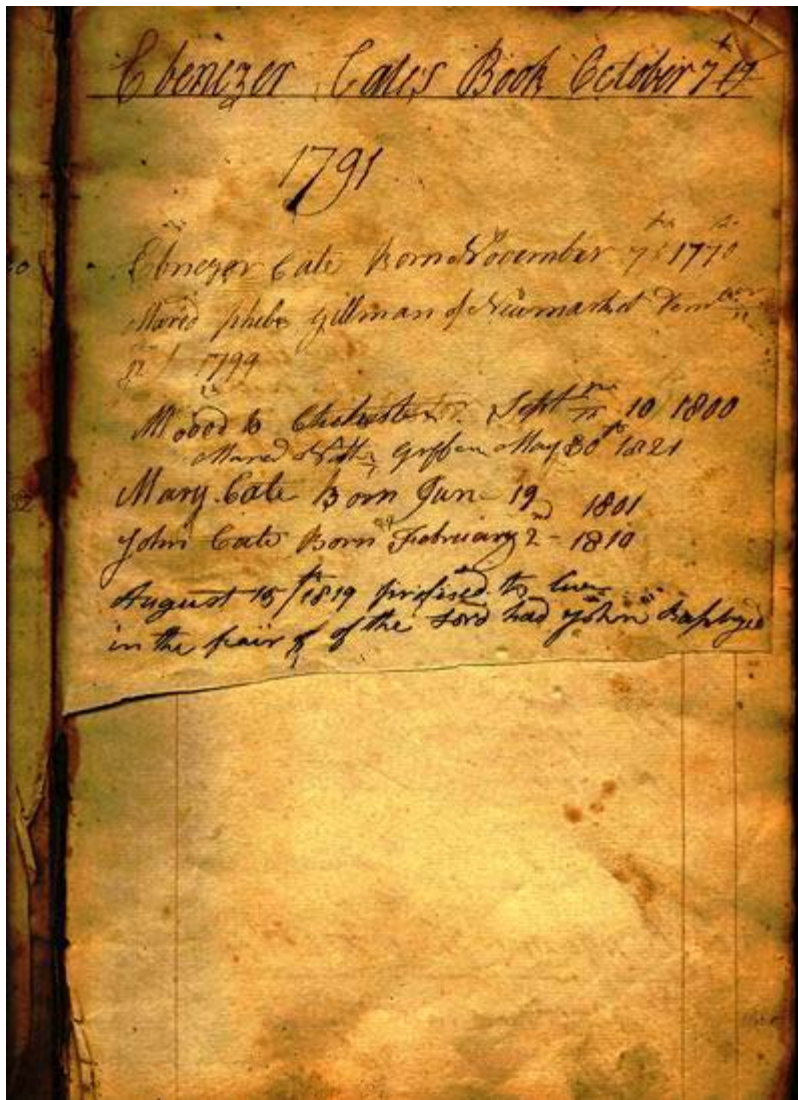 Ebenezer Cate's Book October 7th 17
1791
Ebnezer Cate Born November 7th 1770
Mared phebe gillman of Newmarket
1799
Moved to Chichester Sept 10 1800
Mared Griffen May 30th 1821
Mary Cate Born June 19 1801
John Cate Born February 2nd 1810
August 15th 1819 profesed to
in the fair of of the Lord had John